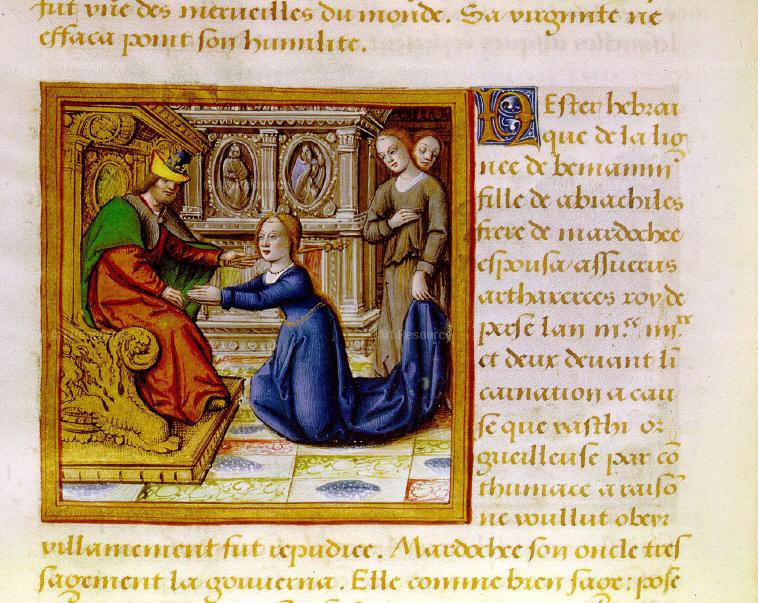 fut vûe des merueilles du monde. Sa virginite ne
effaca point son humilite.
Ester hebrai
que de la lig
nee de beniamin
fille de abiachiles
frere de mardochee
espousa assuerus
arthaxerces roy de
perse lan m.cc iiii.xx
et deux deuant li
carnation a cau
se que vasthi or
gueilleuse par cō
thumace a raisō
ne voullut obeyr
villainement fut repudiee. Mardochee son oncle tres
sagement la gouuerna. Elle comme bien sage: pose